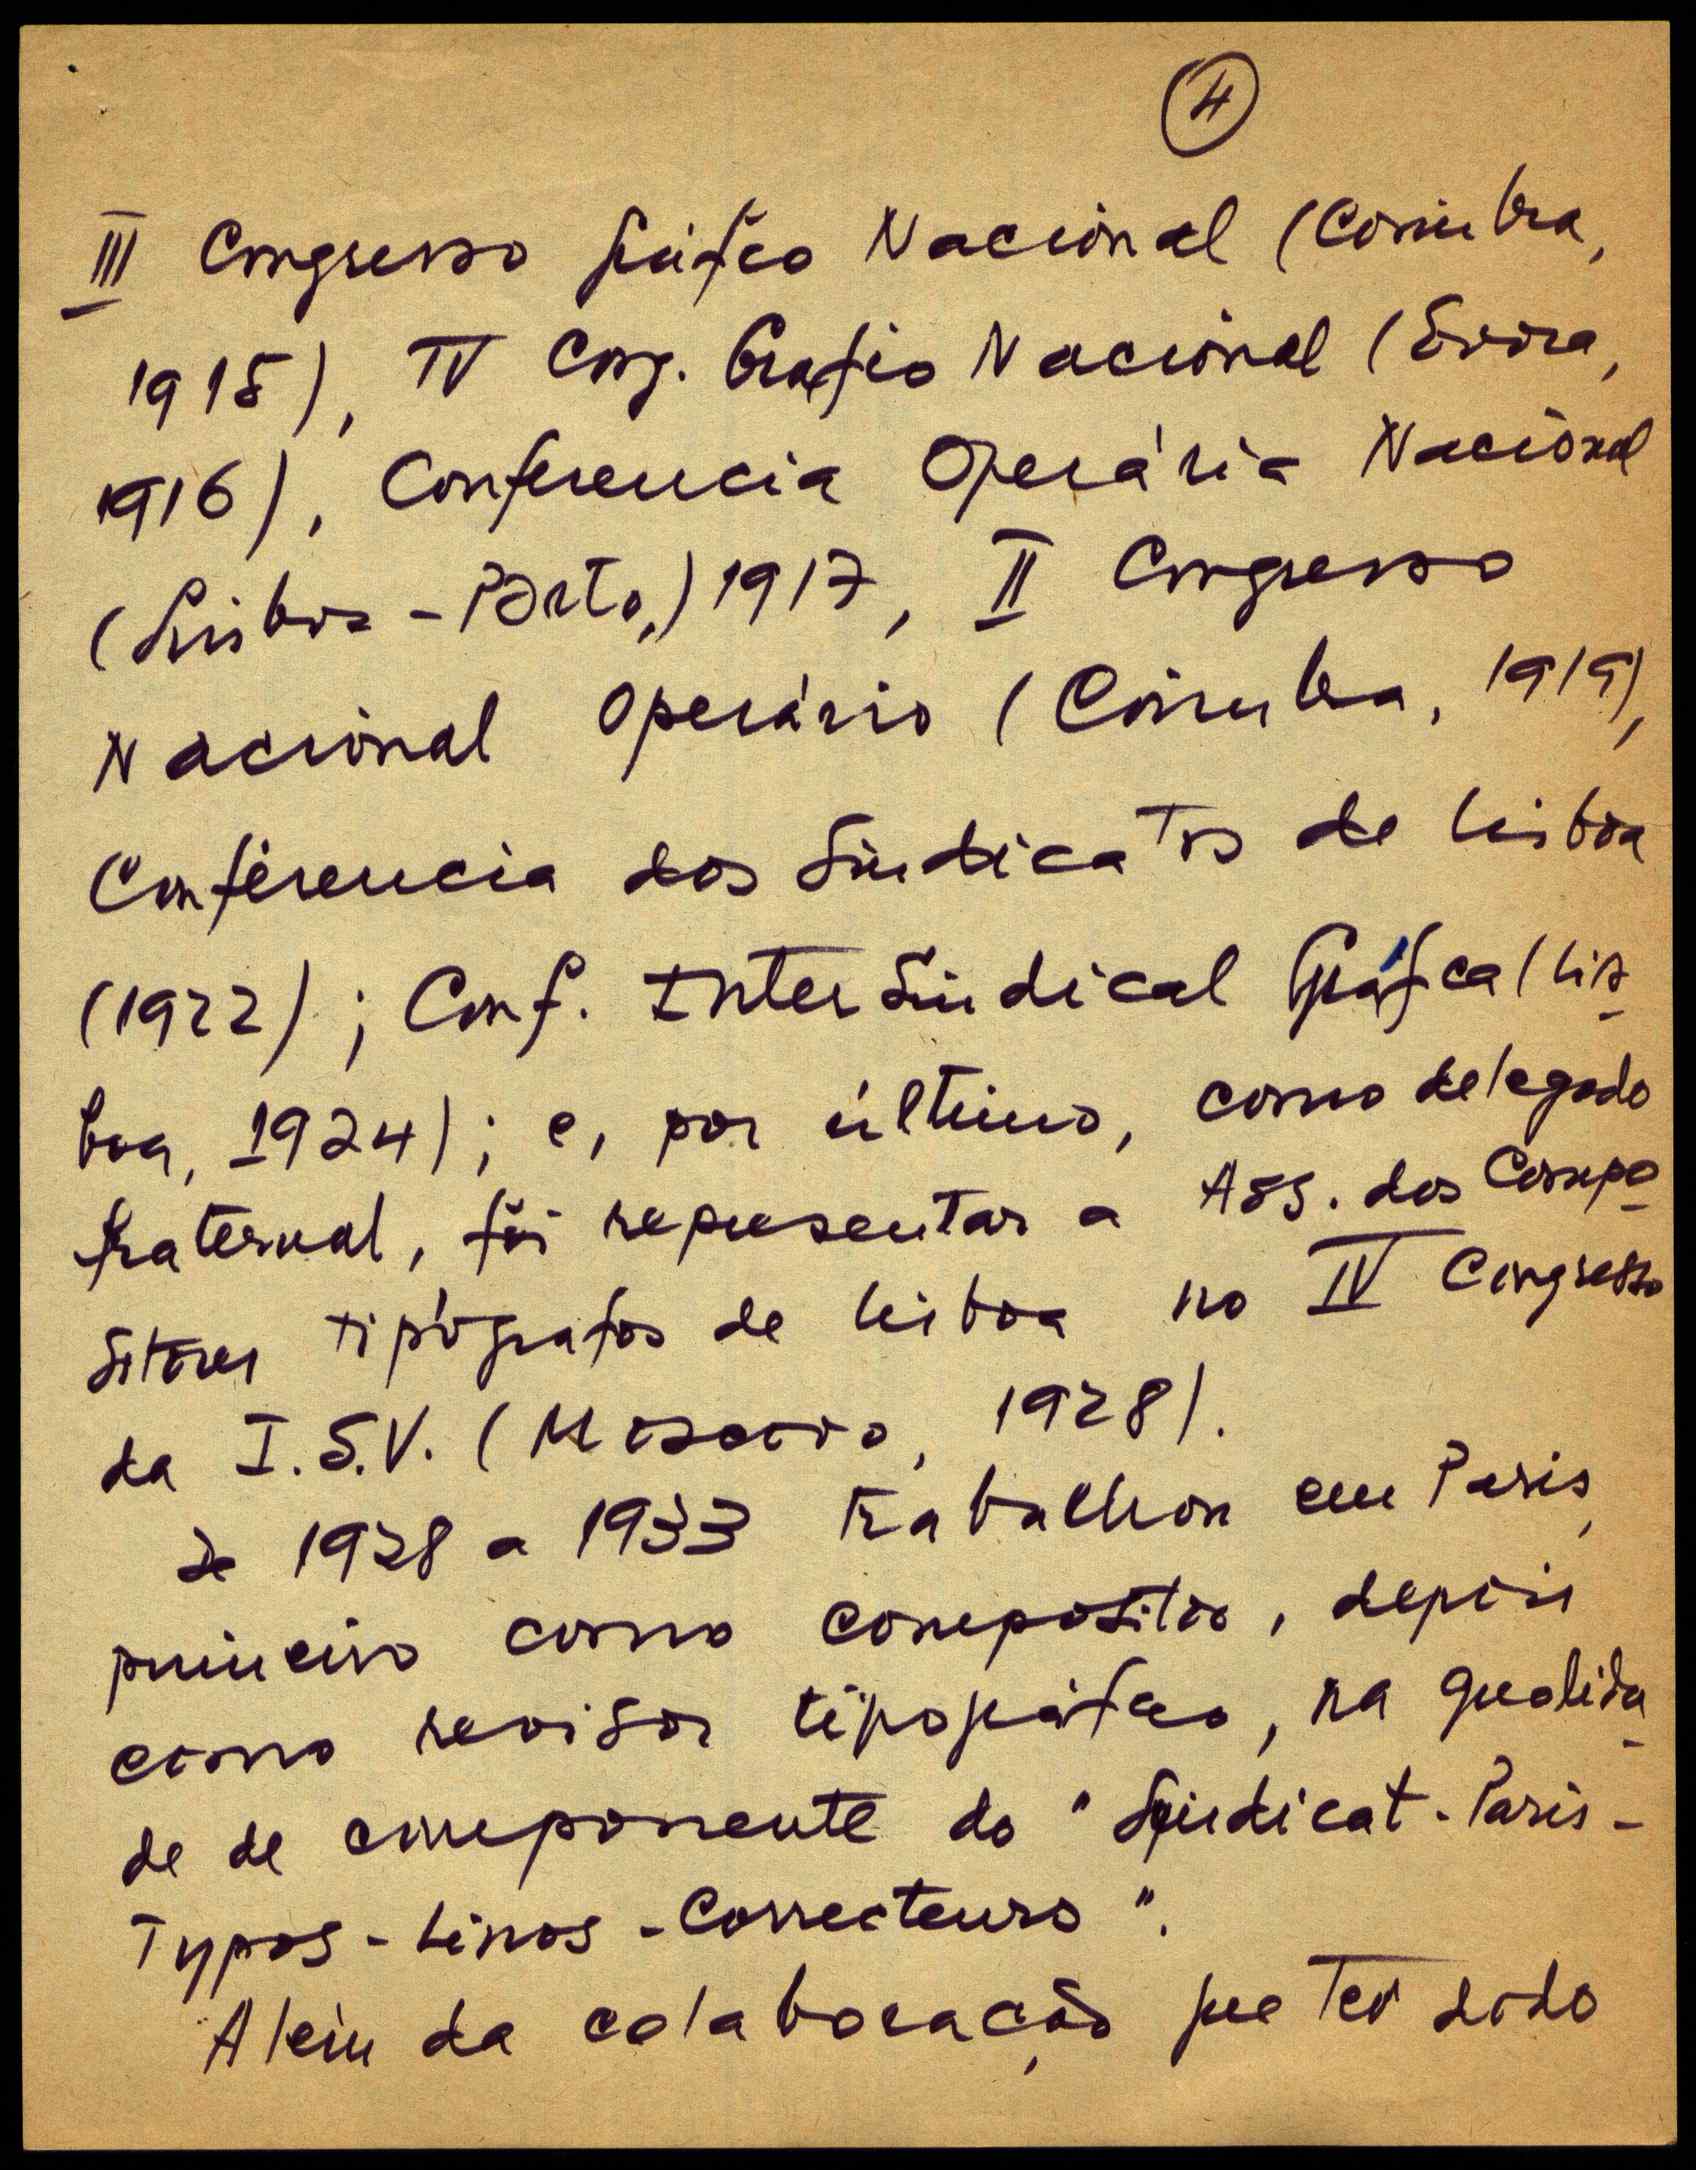 4
III Congresso Gráfico Nacional (Coimbra,
1915), IV Cong. Grafico Nacional (Evora,
1916), Conferencia Operária Nacional
(Lisboa - Porto,) 1917, II Congresso
Nacional Operário (Coimbra, 1919),
Conferencia dos Sindicatos de Lisboa
(1922); Conf. InterSindical Gráfica (Lis-
boa, 1924); e, por último, como delegado
fraternal, foi representar a Ass. dos Compo-
sitores tipógrafos de Lisboa no IV Congresso
da I.S.V. (Moscovo, 1928).
De 1928 a 1933 trabalhou em Paris,
primeiro como compositor, depois
como revisor tipográfico, na qualida-
de de componente do "Syndicat-Paris-
Typos-Linos-Correcteurs".
Alem da colaboração que tem dado